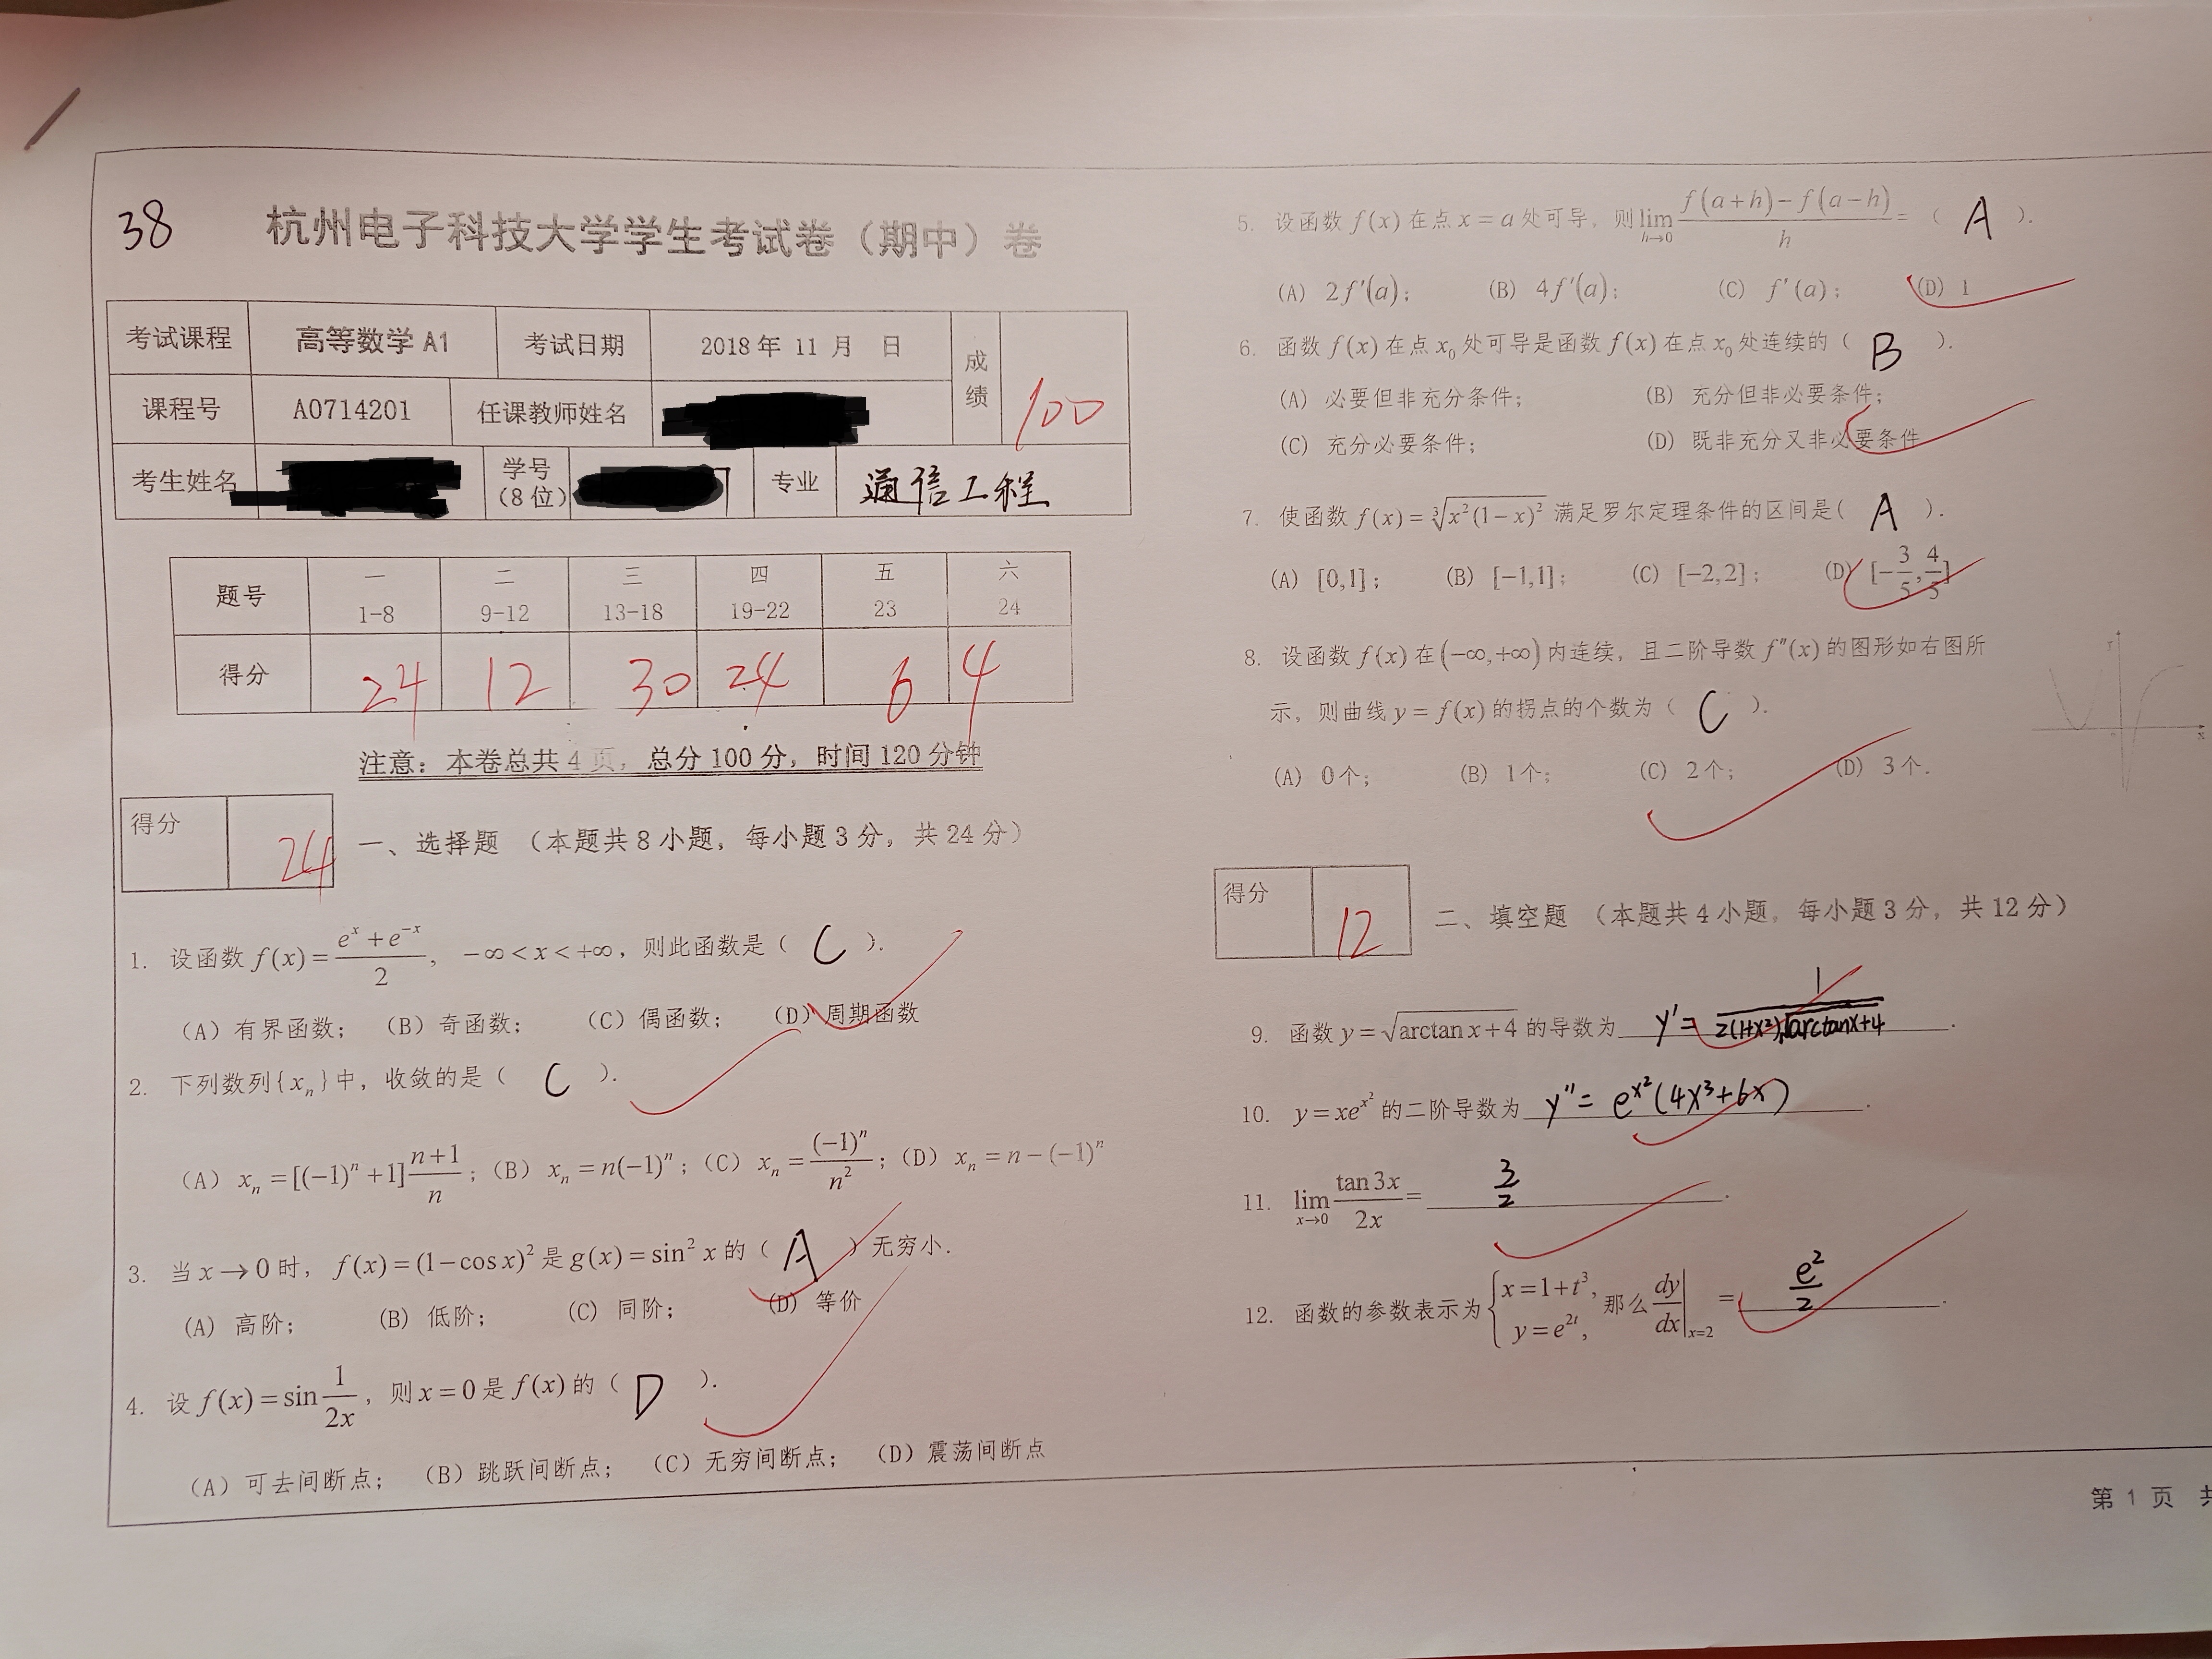 38
杭州电子科技大学学生考试卷（期中）卷
考试课程 高等数学 A1 考试日期 2018年 11 月 日 成绩 100
课程号 A0714201 任课教师姓名
考生姓名 学号（8位） 专业 通信工程
题号 一 1-8 二 9-12 三 13-18 四 19-22 五 23 六 24
得分 24 12 30 24 6 4
注意：本卷总共4页，总分100分，时间120分钟
得分 24 一、选择题 （本题共8小题，每小题3分，共24分）
1. 设函数 f(x)=\frac{e^x+e^{-x}}{2}， -∞<x<+∞，则此函数是（ C ）.
（A）有界函数； （B）奇函数； （C）偶函数； （D）周期函数
2. 下列数列{x_n}中，收敛的是（ C ）.
（A） x_n=[(-1)^n+1]\frac{n+1}{n}；（B） x_n=n(-1)^n；（C） x_n=\frac{(-1)^n}{n^2}；（D） x_n=n-(-1)^n
3. 当 x→0 时， f(x)=(1-cos x)^2 是 g(x)=sin^2 x 的（ A ）无穷小.
(A) 高阶； (B) 低阶； (C) 同阶； (D) 等价
4. 设 f(x)=sin\frac{1}{2x}，则 x=0 是 f(x) 的（ D ）.
（A）可去间断点； （B）跳跃间断点； （C）无穷间断点； （D）震荡间断点
5. 设函数 f(x) 在点 x=a 处可导，则 \lim_{h→0}\frac{f(a+h)-f(a-h)}{h}=（ A ）.
(A) 2f'(a)； (B) 4f'(a)； (C) f'(a)； (D) 1
6. 函数 f(x) 在点 x_0 处可导是函数 f(x) 在点 x_0 处连续的（ B ）.
(A) 必要但非充分条件； (B) 充分但非必要条件；
(C) 充分必要条件； (D) 既非充分又非必要条件
7. 使函数 f(x)=\sqrt[3]{x^2(1-x)^2} 满足罗尔定理条件的区间是（ A ）.
(A) [0,1]； (B) [-1,1]； (C) [-2,2]； (D) [-\frac{3}{5},\frac{4}{5}]
8. 设函数 f(x) 在(-∞,+∞)内连续，且二阶导数 f''(x) 的图形如右图所
示，则曲线 y=f(x) 的拐点的个数为（ C ）.
(A) 0个； (B) 1个； (C) 2个； (D) 3个.
得分 12 二、填空题 （本题共4小题，每小题3分，共12分）
9. 函数 y=\sqrt{arctan x+4} 的导数为 y'=\frac{1}{2(1+x^2)\sqrt{arctanx+4}}.
10. y=xe^{x^2} 的二阶导数为 y''= e^{x^2}(4x^3+6x).
11. \lim_{x→0}\frac{tan 3x}{2x}= \frac{3}{2}.
12. 函数的参数表示为 \begin{cases}x=1+t^3,\\ y=e^{2t},\end{cases} 那么 \frac{dy}{dx}|_{x=2} = \frac{e^2}{2}.
第 1 页